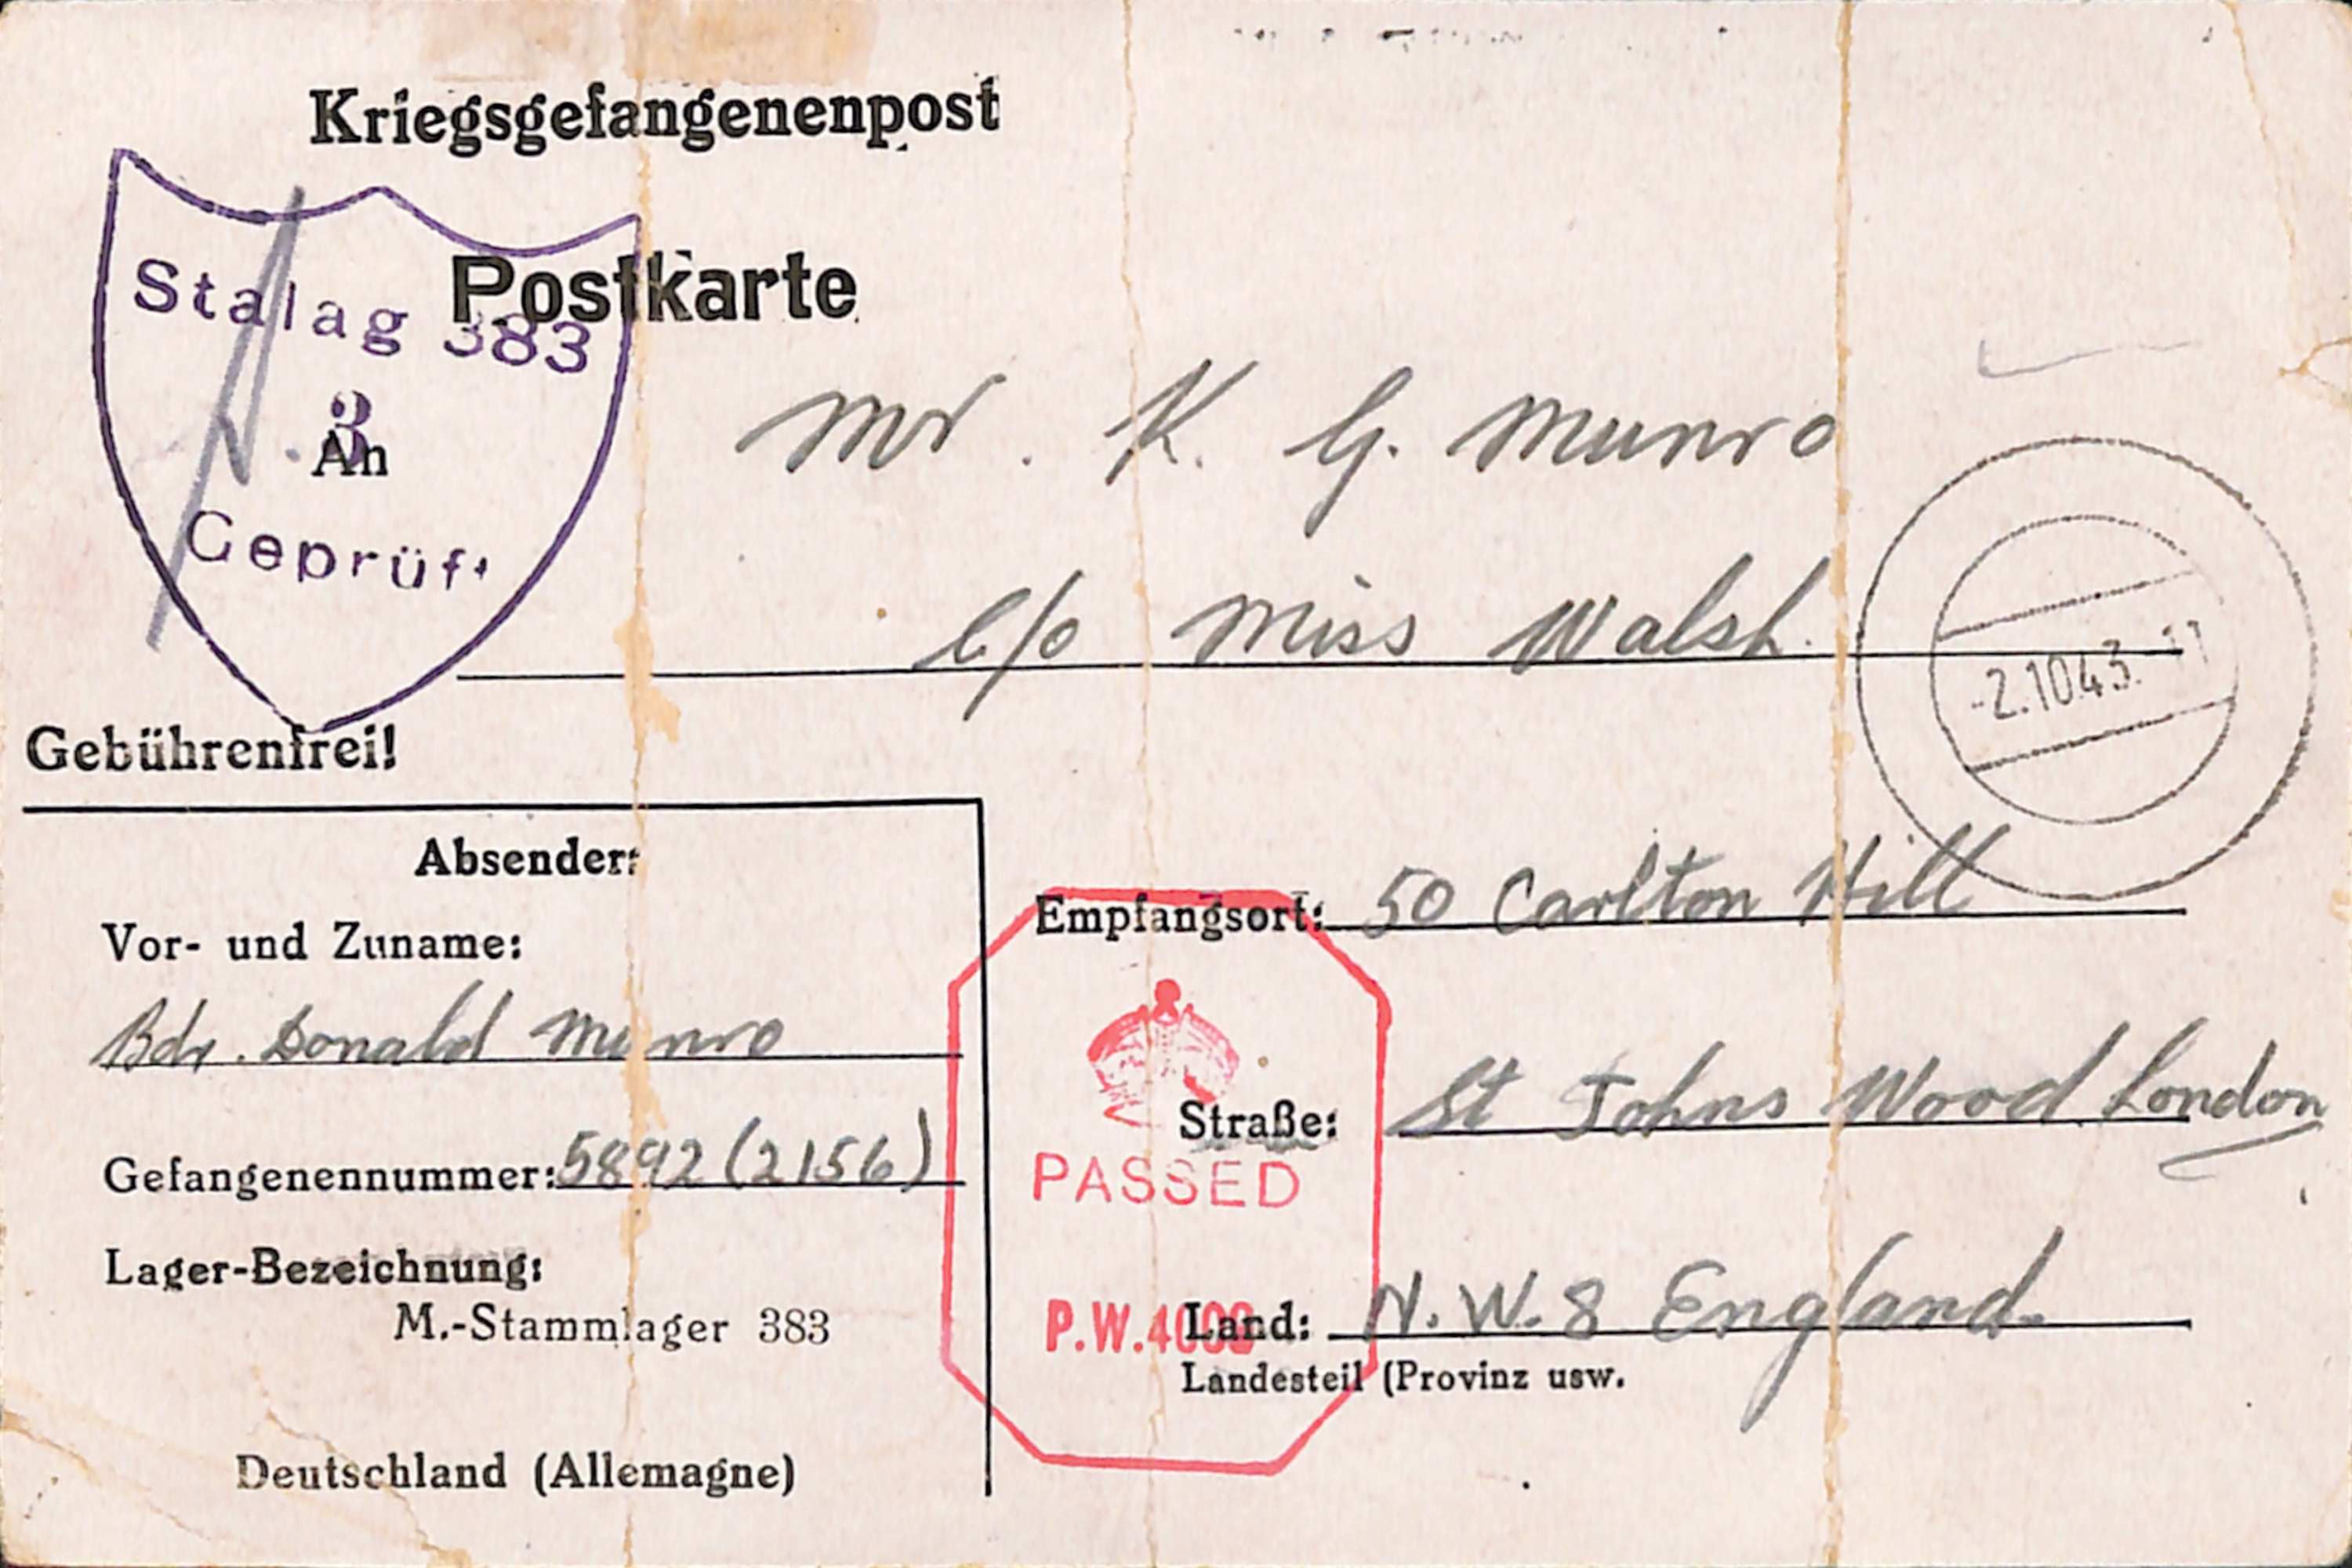 Kriegsgefangenenpost
Postkarte
Stalag 383
3
Geprüft
An
Mr. K. G. Munro
c/o Miss Walsh.
-2.10.43.-11
Gebührenfrei!
Absender:
Vor- und Zuname:
Bdr. Donald Munro
Gefangenennummer: 5892 (2156)
Lager-Bezeichnung:
M.-Stammlager 383
Deutschland (Allemagne)
Empfangsort: 50 Carlton Hill
Straße: St Johns Wood London
PASSED
P.W.
Land: N.W.8 England.
Landesteil (Provinz usw.